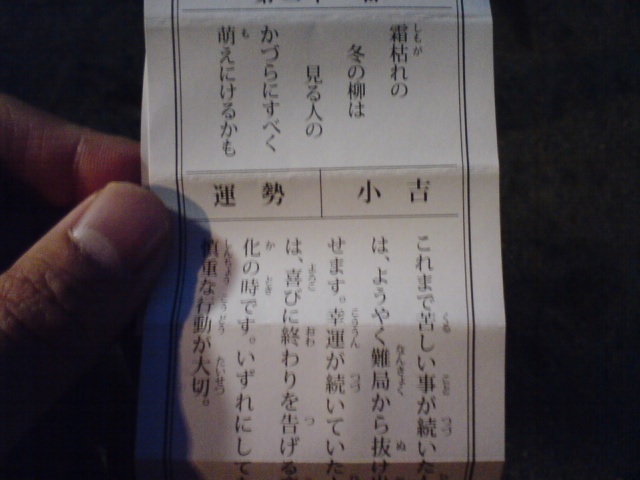 霜枯れの
冬の柳は
見る人の
かづらにすべく
萌えにけるかも
小吉
運勢
これまで苦しい事が続いた
は、ようやく難局から抜け
せます。幸運が続いていた
は、喜びに終わりを告げる
化の時です。いずれにして
慎重な行動が大切。